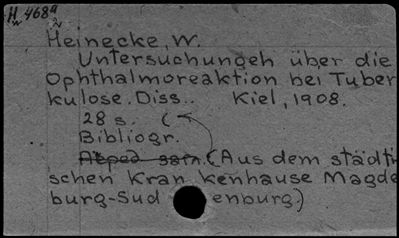 H 468a
Heinecke, W.
Untersuchungeh über die
Ophthalmoreaktion bei Tuber
kulose. Diss.. Kiel, 1908.
28 s. (
Bibliogr.
(Aus dem städti
schen Kran kenhause Magde
burg-Sud enburg)